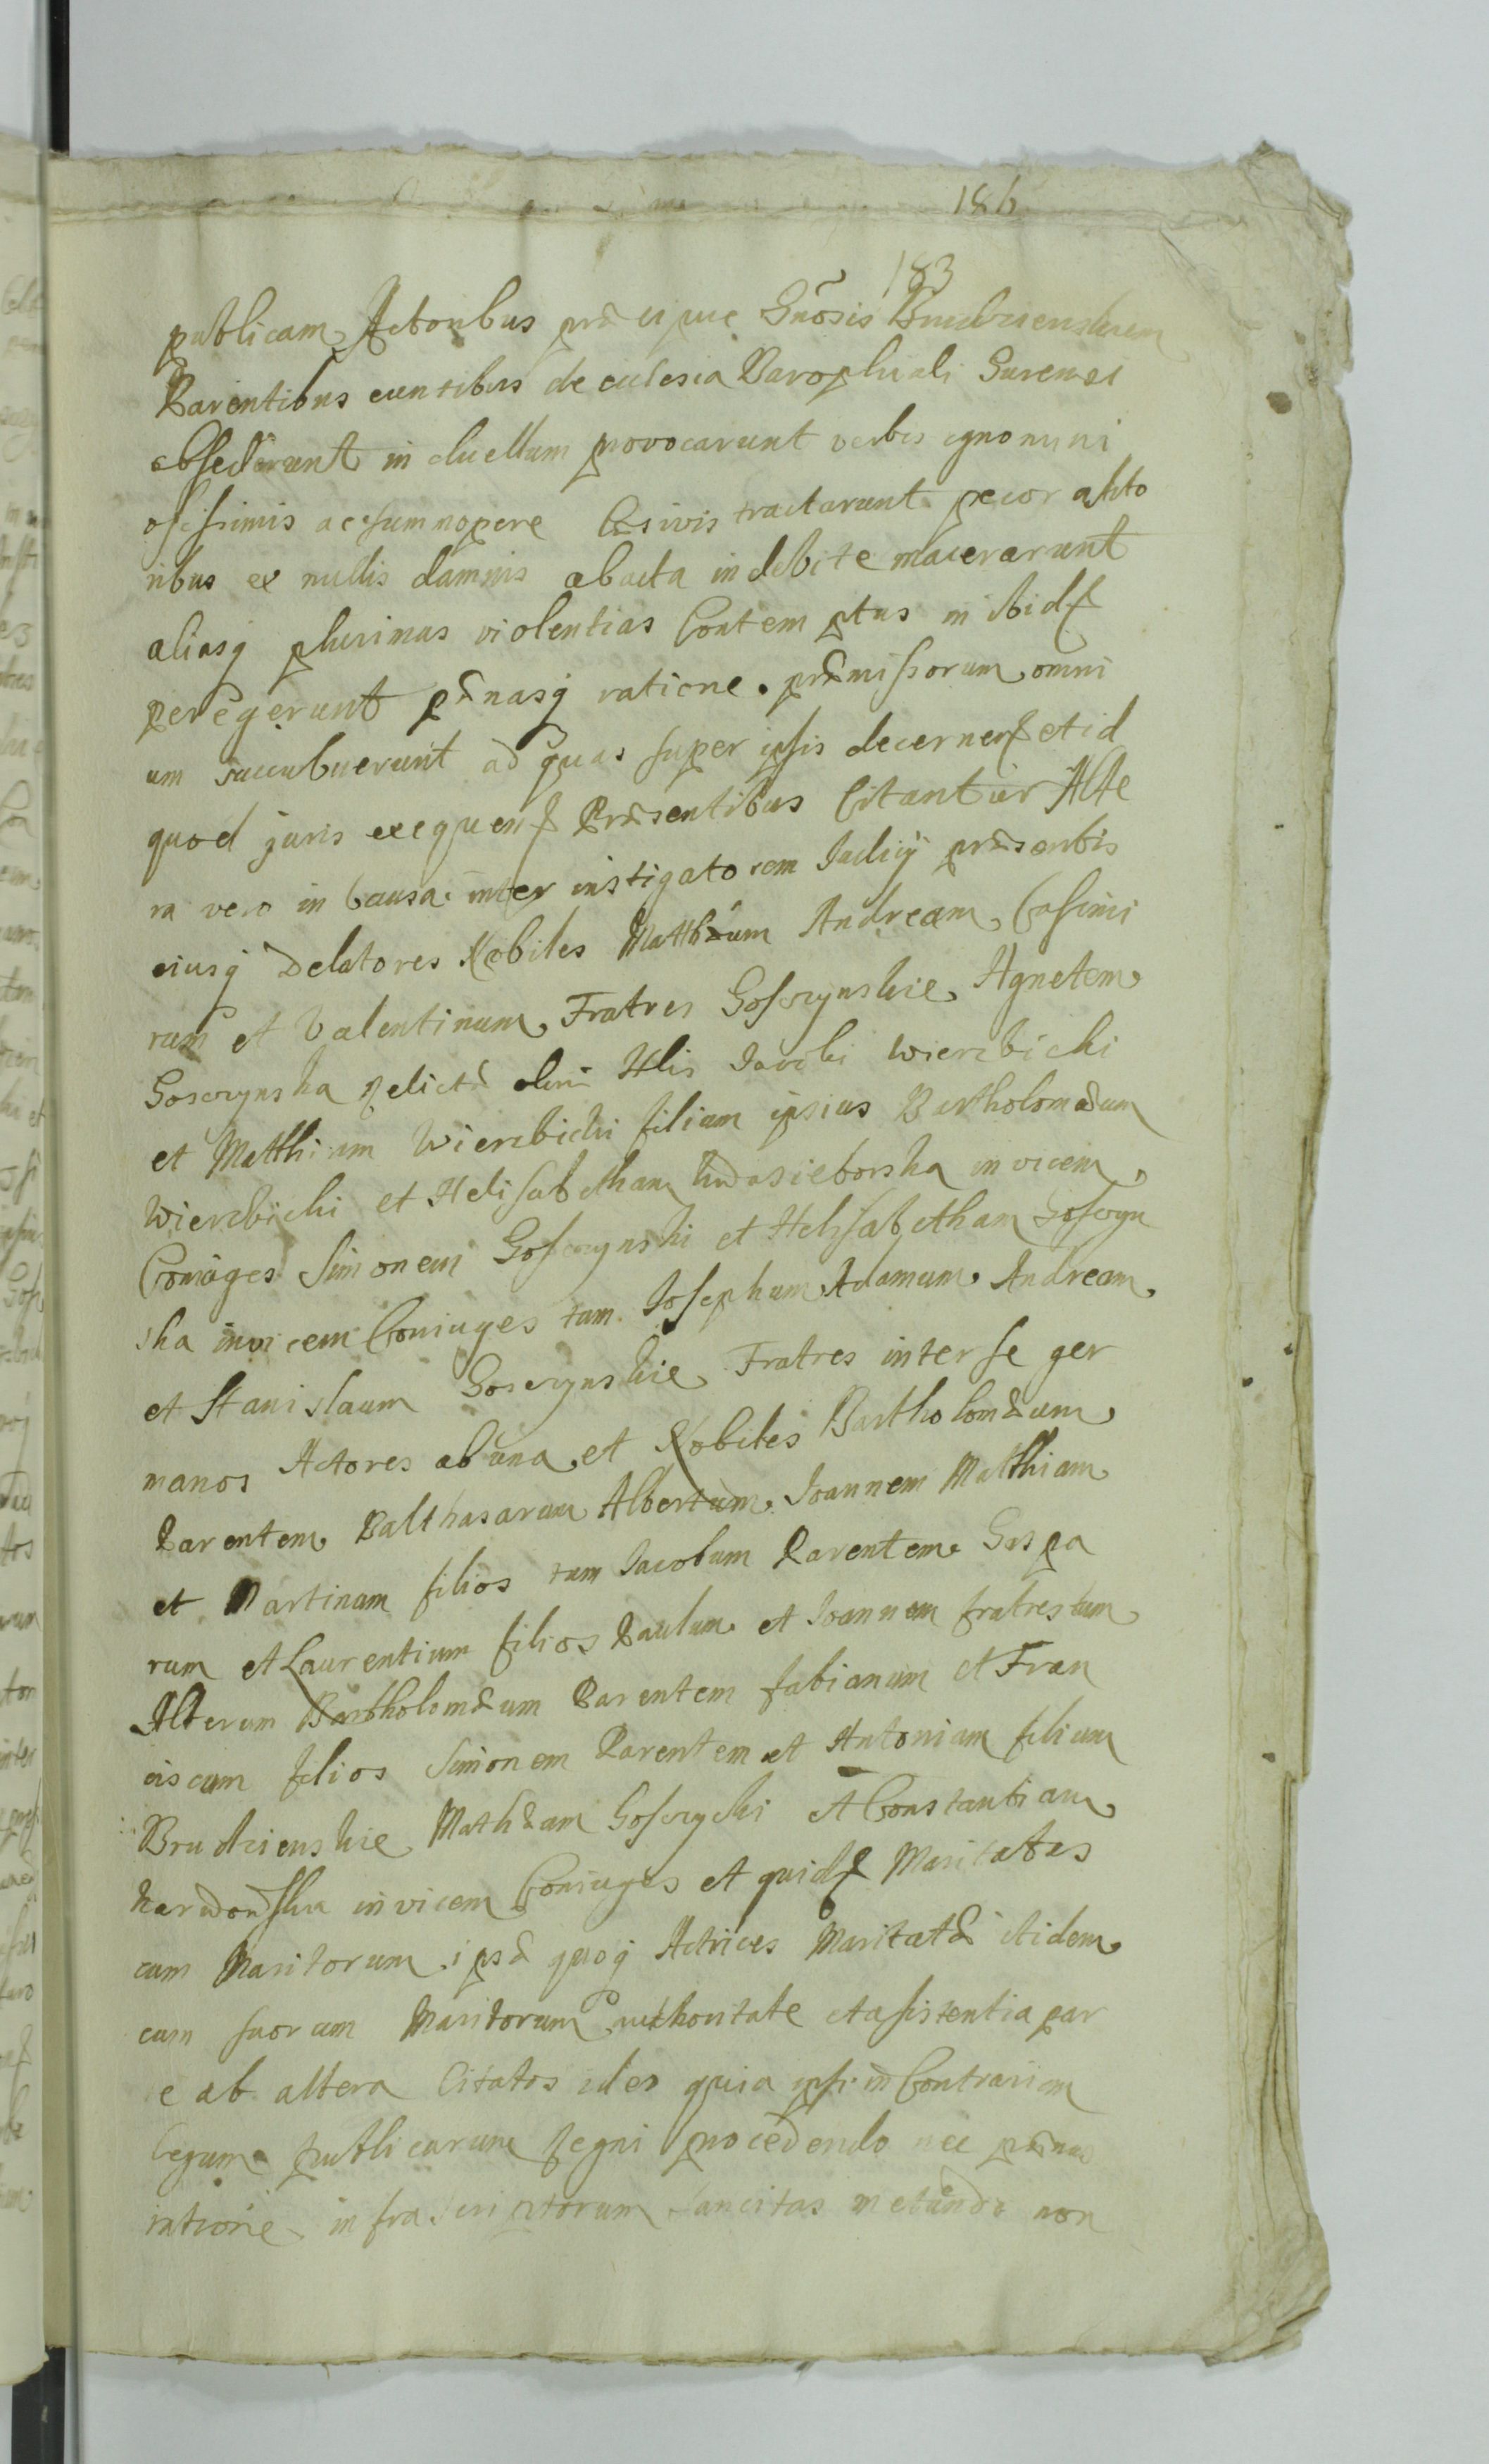 186
183
publicam Actoribus præcipue Gnõsis Brudzienskiem
Parentibus euntibus de eclesia Parophiali Surensi
obsederunt in duellum provocarunt verbis ignomini
osissimis ac summopere læsivis tractarunt pecor a Acto
ribus ex nullis damnis abacta indebite macerarunt
aliasq plurimas violentias Contemptus in ibidem
peregerunt pænasq ratione præmissorum omni
um succubuerunt ad quas super ipsis decernen et id
quod juris exequen Præsentibus Citantur Alte
ra vero in Causa inter instigatorem Judicij præsentis
eiusq Delatores Nobiles Matthæum Andream Casimi
rum et Valentinum Fratres Gosczynskie Agnetem
Gosczynska Relictæ olim Nlis Jacobi Wierzbicki
et Matthiam Wierzbicki filium ipsius Bartholomæum
Wierzbicki et Helisabetham invicem
Coniuges Simonem Gosczynski et Helisabetham Gosczyn
ska invicem Coniuges tam Josephum Adamum Andream
et Stanislaum Gosczynskie Fratres inter se ger
manos Actores ab una et Nobiles Bartholomæum
Parentem Balthasarum Albertum Joannem Matthiam
et Martinum filios tum Jacobum Parentem Gaspa
rum et Laurentium filios Paulum et Joannem fratres tum
Alterum Bartholomæum Parentem fabianum et Fran
ciscum filios Simonem Parentem et Antonium filium
Brudzienskie Mathæum Gosczycki et Constantiam
invicem Coniuges et quidem Maritatas
cum Maritorum ipsæ quoq Actrices Maritatæ itidem
cum suorum Maritorum authoritate et asistentia par
e ab altera Citatos ideo quia ipsi in Contrarium
legum publicarum Regni procedendo nec pænas
ratione infrascriptorum sancitas metuendo non